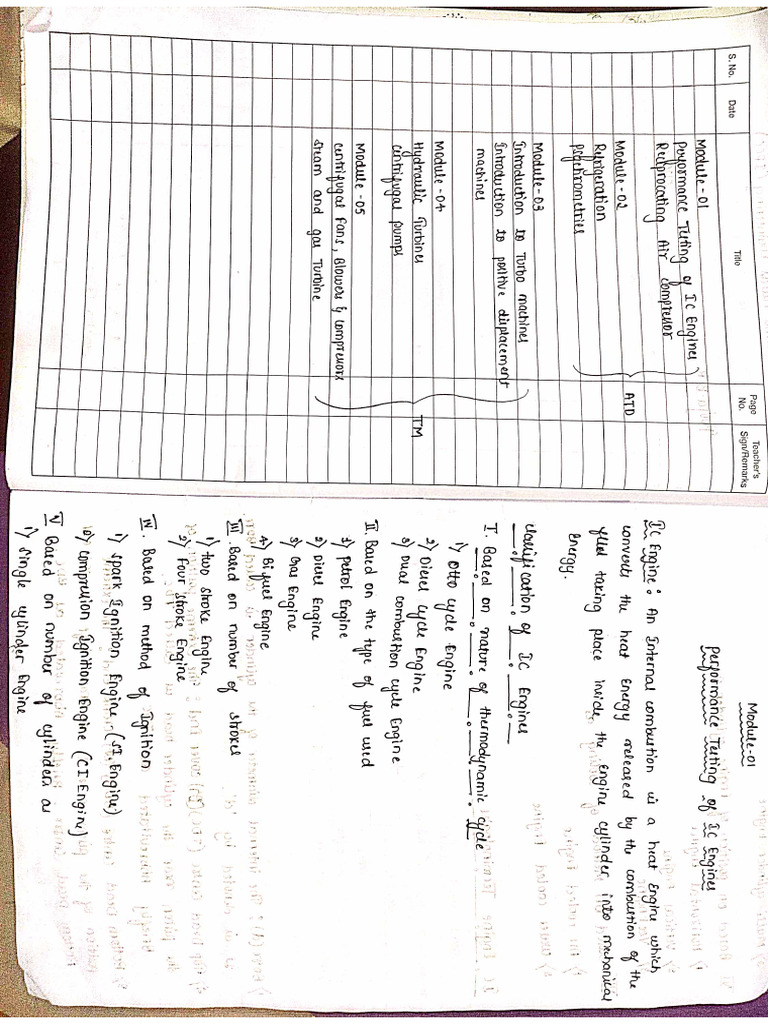 S. No.
Date
Title
Page No.
Teacher's Sign/Remarks
Module-01
Performance Testing of IC Engines
Reciprocating Air compressor
Module-02
Refrigeration
psychrometrics
ATD
Module-03
Introduction to Turbo machines
Introduction to positive displacement
machines
Module-04
Hydraulic Turbines
centrifugal pumps
Module-05
centrifugal Fans, Blowers & compressors
steam and gas Turbine
TM
Module-01
performance Testing of IC Engines
IC Engine: An Internal combustion is a heat Engine which
converts the heat Energy released by the combustion of the
fuel taking place inside the engine cylinder into mechanical
Energy.
classification of IC Engines
I. Based on nature of thermodynamic cycle
1) Otto cycle Engine
2) Diesel cycle Engine
3) Dual combustion cycle Engine
II. Based on the type of fuel used
1) Petrol Engine
2) Diesel Engine
3) Gas Engine
4) Bi fuel Engine
III Based on number of strokes
1) two stroke Engine
2) Four stroke Engine
IV. Based on method of Ignition
1) spark Ignition Engine (SI Engine)
2) compression Ignition Engine (CI Engine)
V Based on number of cylinders as
1) single cylinder Engine